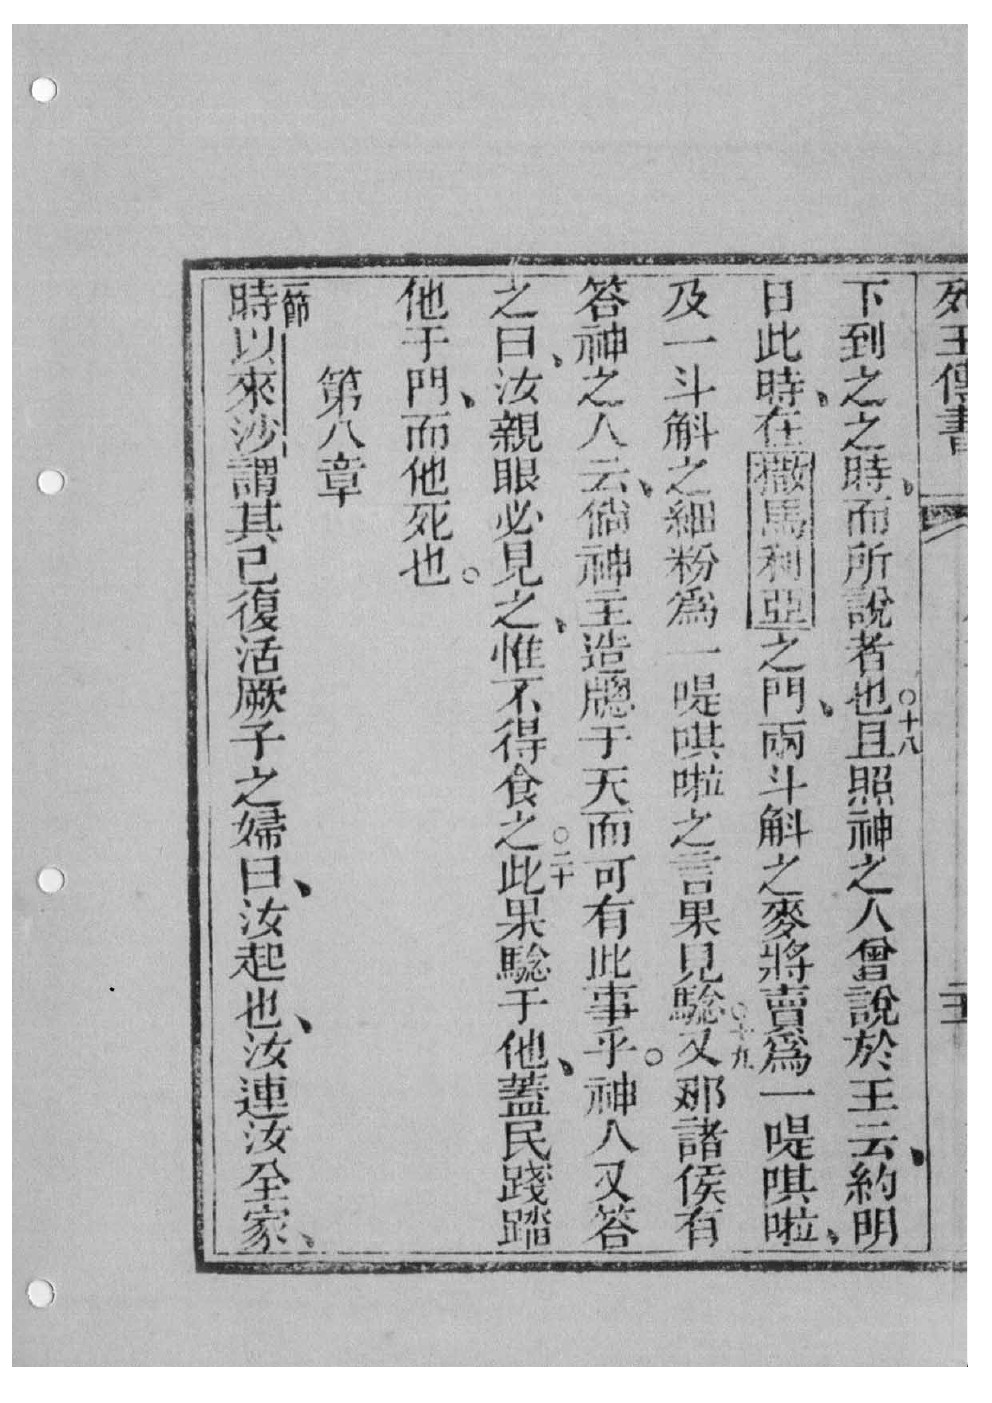 王傳書
下到之之時、而所說者也○十八且照神之人曾說於王云、約明
日此時、在撒馬利亞之門、兩斗斛之麥將賣爲一㖷唭啦、
及一斗斛之細粉爲一㖷唭啦之言果見驗○十九又那諸侯有
答神之人云、倘神主造牕于天而可有此事乎。神人又答
之曰、汝親眼必見之、惟不得食之○二十此果驗于他、蓋民踐踏
他于門、而他死也。
第八章
一節時以來沙謂其已復活厥子之婦曰、汝起也、汝連汝全家、